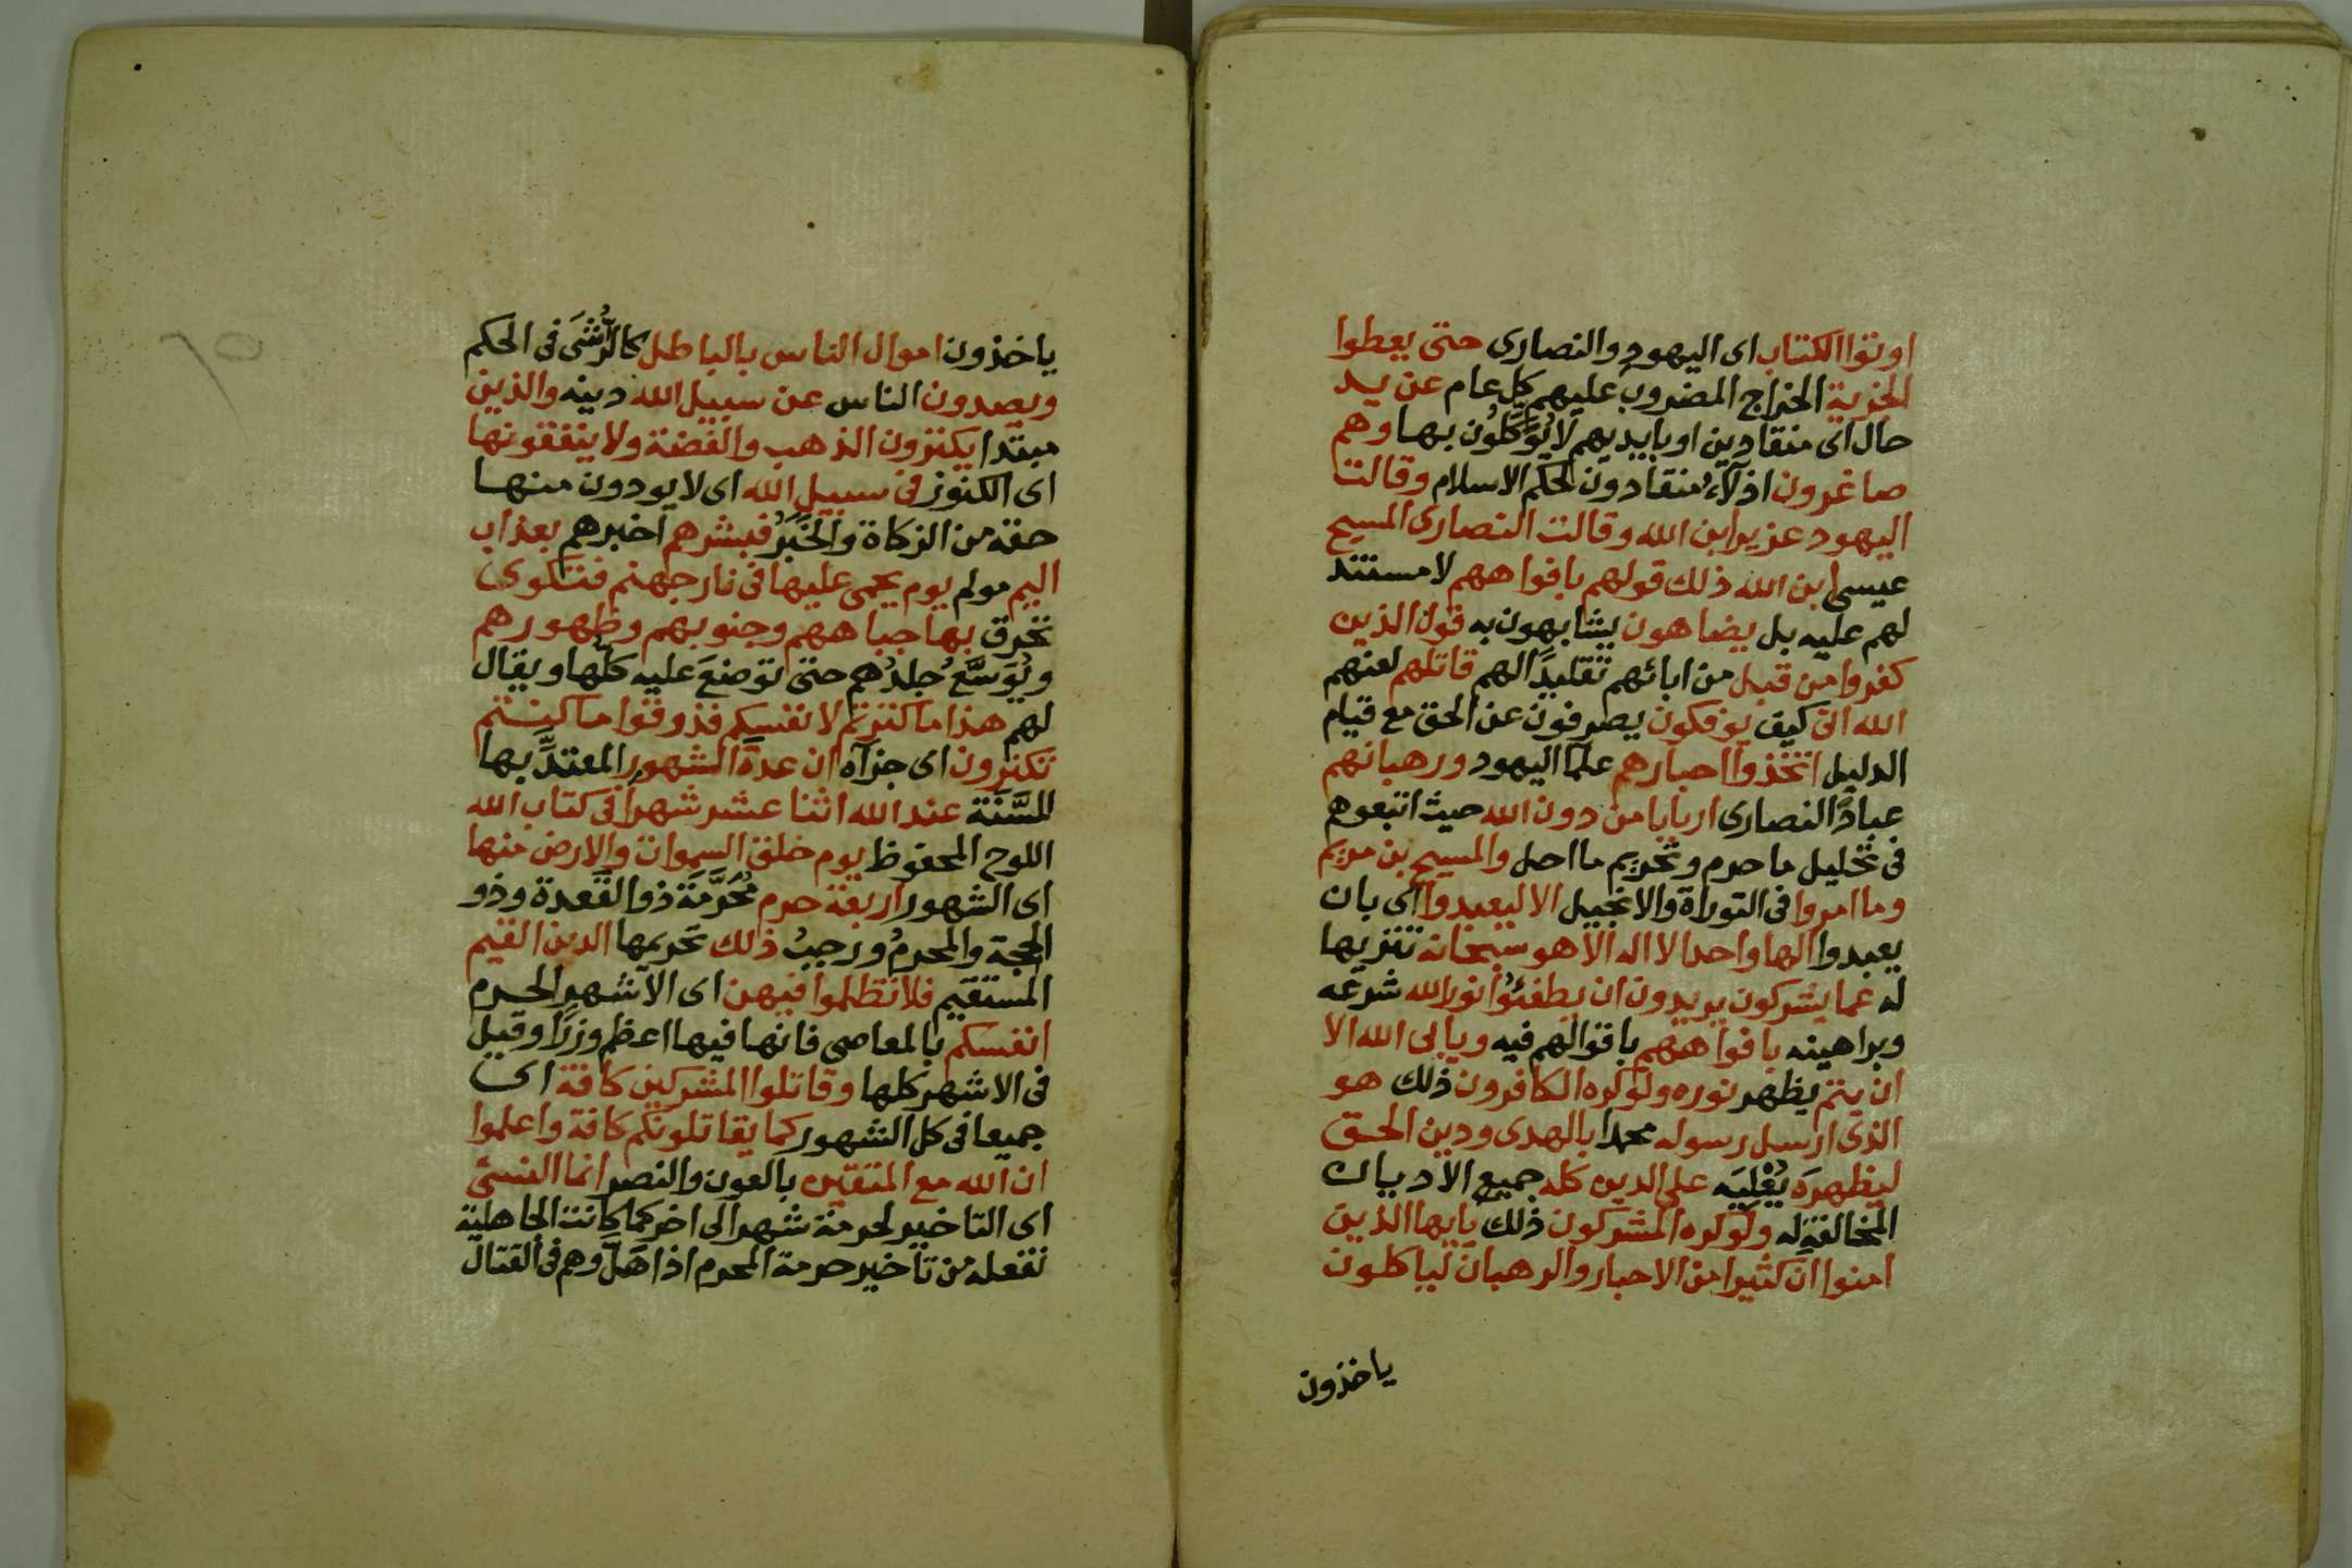 اوتوا الكتاب اى اليهود والنصارى حتى يعطوا
الجزية الخراج المضروب عليهم كل عام عن يد
حال اى منقادين او بايديهم لا يُوَكِّلُون بها وهم
صاغرون اذلآء منقادون لحكم الاسلام وقالت
اليهود عزير ابن الله وقالت النصارى المسيح
عيسى ابن الله ذلك قولهم بافواههم لا مستند
لهم عليه بل يضاهون يشابهون به قول الذين
كفروا من قبل من ابائهم تقليدًا لهم قاتلهم لعنهم
الله انى كيف يوفكون يصرفون عن الحق مع قيام
الدليل اتخذوا احبارهم علما اليهود ورهبانهم
عبادَّ النصارى اربابا من دون الله حيث اتبعوهم
فى تحليل ما حرم وتحريم ما احل والمسيح بن مريم
وما امروا فى التوراة والانجيل الا ليعبدوا اى بان
يعبدوا الها واحدا لا اله الا هو سبحانه تنزيها
له عما يشركون يريدون ان يطفئوُا نور الله شرعه
وبراهينه بافواههم باقوالهم فيه ويابى الله الا
ان يتم يظهر نوره ولو كره الكافرون ذلك هو
الذى ارسل رسوله محمدا بالهدى ودين الحق
ليظهرَه يُعْلِيَه على الدين كله جميع الاديان
المخالفةِ له ولو كره المشركون ذلك يايها الذين
امنوا ان كثيرا من الاحبار والرهبان لياكلون
ياخذون
ياخذون اموال الناس بالباطل كالرُّشَى فى الحكم
ويصدون الناس عن سبيل الله دينه والذين
مبتدا يكنزون الذهب والفضة ولا ينفقونها
اى الكنوز فى سبيل الله اى لا يودون منها
حقه من الزكاة والخَبَرُ فبشرهم اخبرهم بعذاب
اليم مولم يوم يحمى عليها فى نار جهنم فتكوى
تحرق بها جباههم وجنوبهم وظهورهم
ويُوَسَّعُ جلدُهم حتى توضعَ عليه كلُّها ويقال
لهم هذا ما كنزتم لانفسكم فذوقوا ما كنتم
تكنزون اى جزآه ان عدةَ الشهور المعتدِّ بها
للسَّنَة عند الله اثنا عشر شهرا فى كتاب الله
اللوح المحفوظ يوم خلق السموات والارض منها
اى الشهور اربعة حرم مُحَرَّمَة ذو القَعدة وذو
الحجة والمحرمُ ورجبُ ذلك تحريمها الدين القيم
المستقيم فلا تظلموا فيهن اى الاشهرِ الحرم
انفسكم بالمعاصى فانها فيها اعظم وزرًا وقيل
فى الاشهر كلها وقاتلوا المشركين كافة اى
جميعا فى كل الشهور كما يقاتلونكم كافة واعلموا
ان الله مع المتقين بالعون والنصر انما النسئ
اى التاخير لحرمة شهر الى اخر كما كانت الجاهلية
تفعله من تأخير حرمة المحرم اذا هَلَّ وهم فى القتال